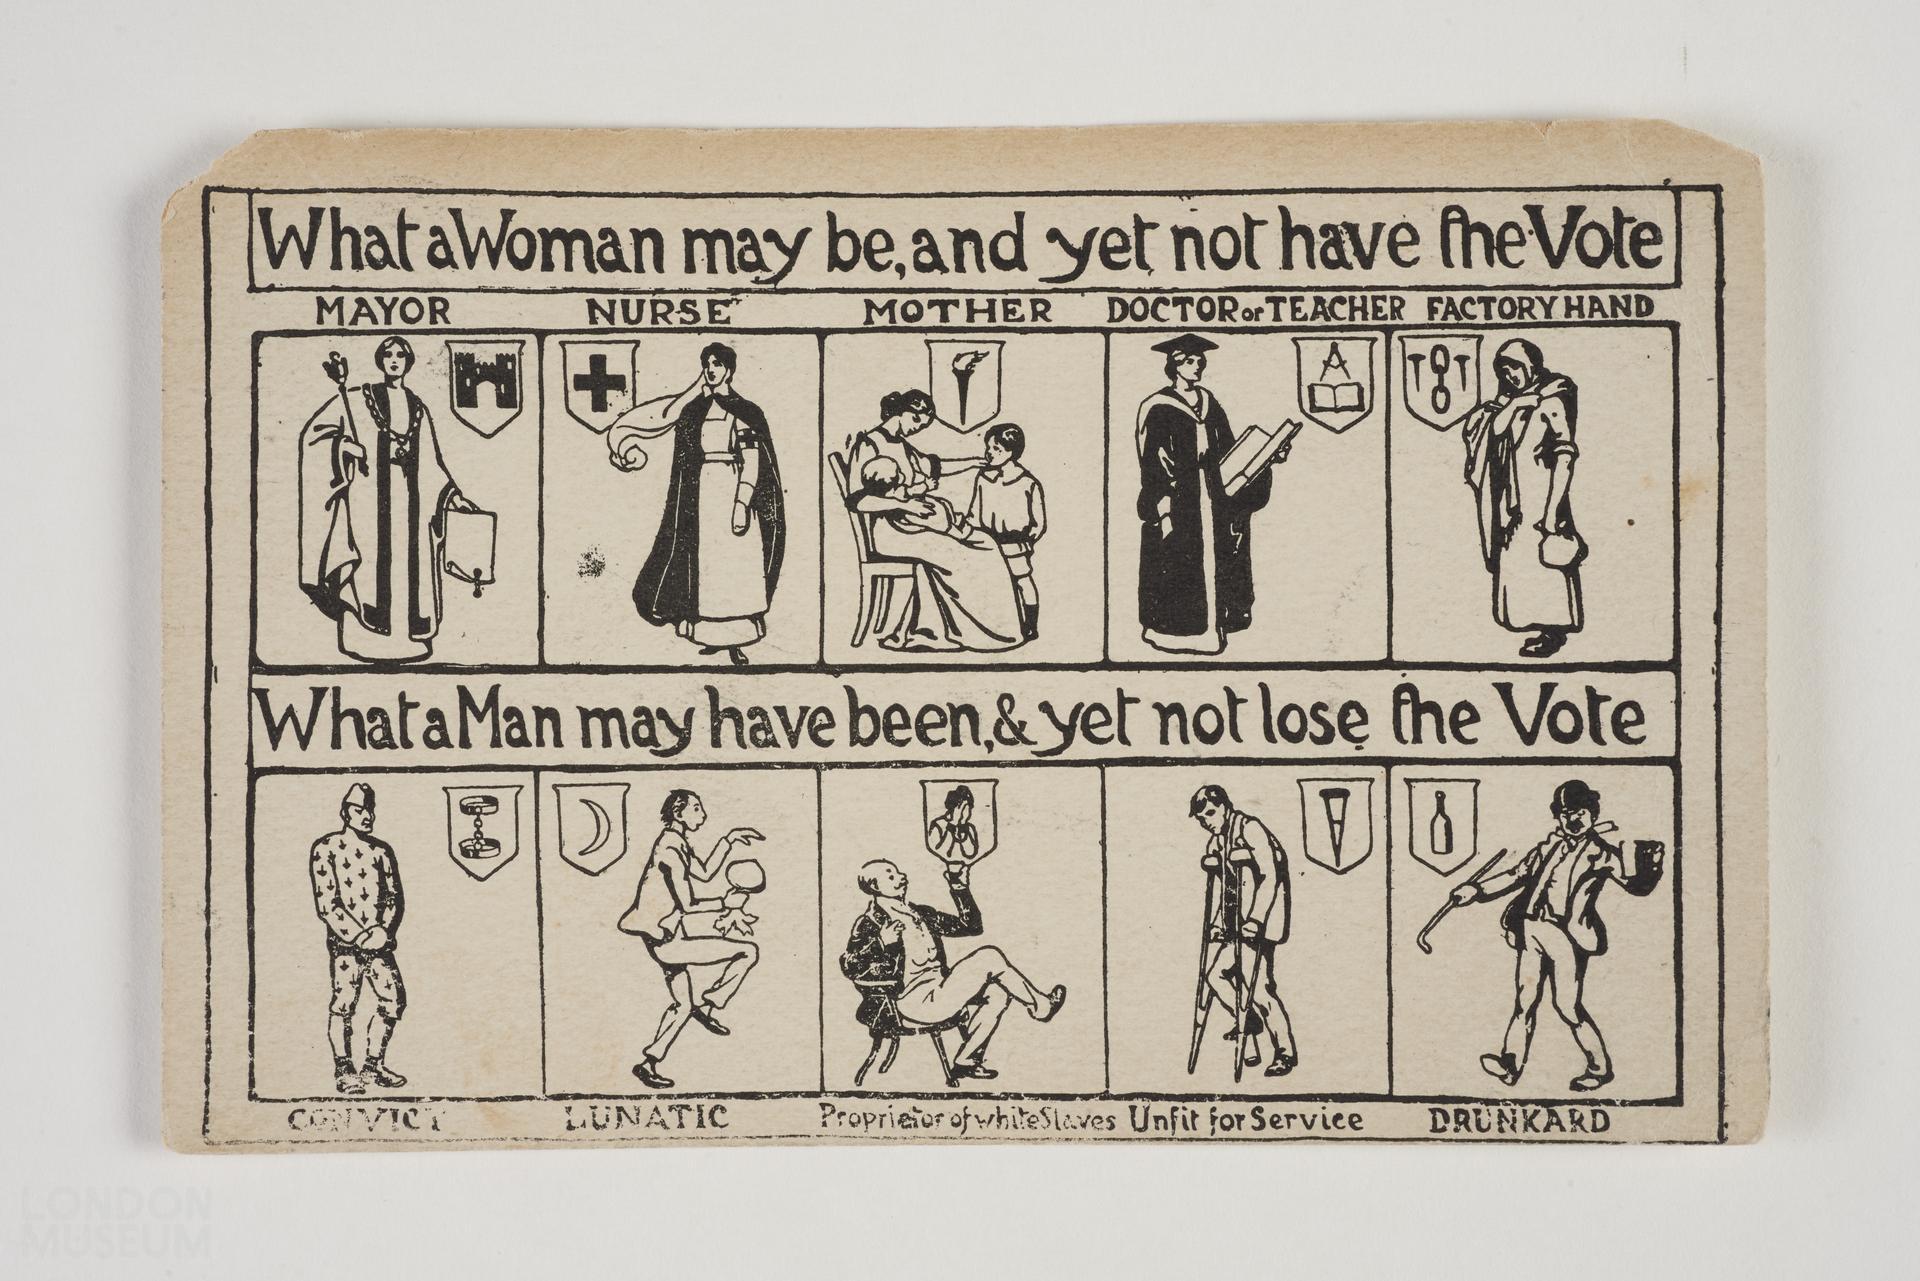 What a Woman may be, and yet not have the Vote
MAYOR NURSE MOTHER DOCTOR or TEACHER FACTORY HAND
What a Man may have been, & yet not lose the Vote
CONVICT LUNATIC Proprietor of white Slaves Unfit for Service DRUNKARD
LONDON
MUSEUM